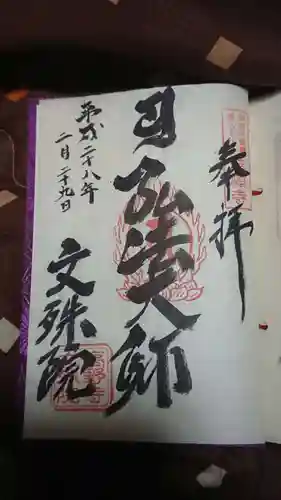 奉拝
弘法大師
平成二十八年
二月二十九日
文殊院